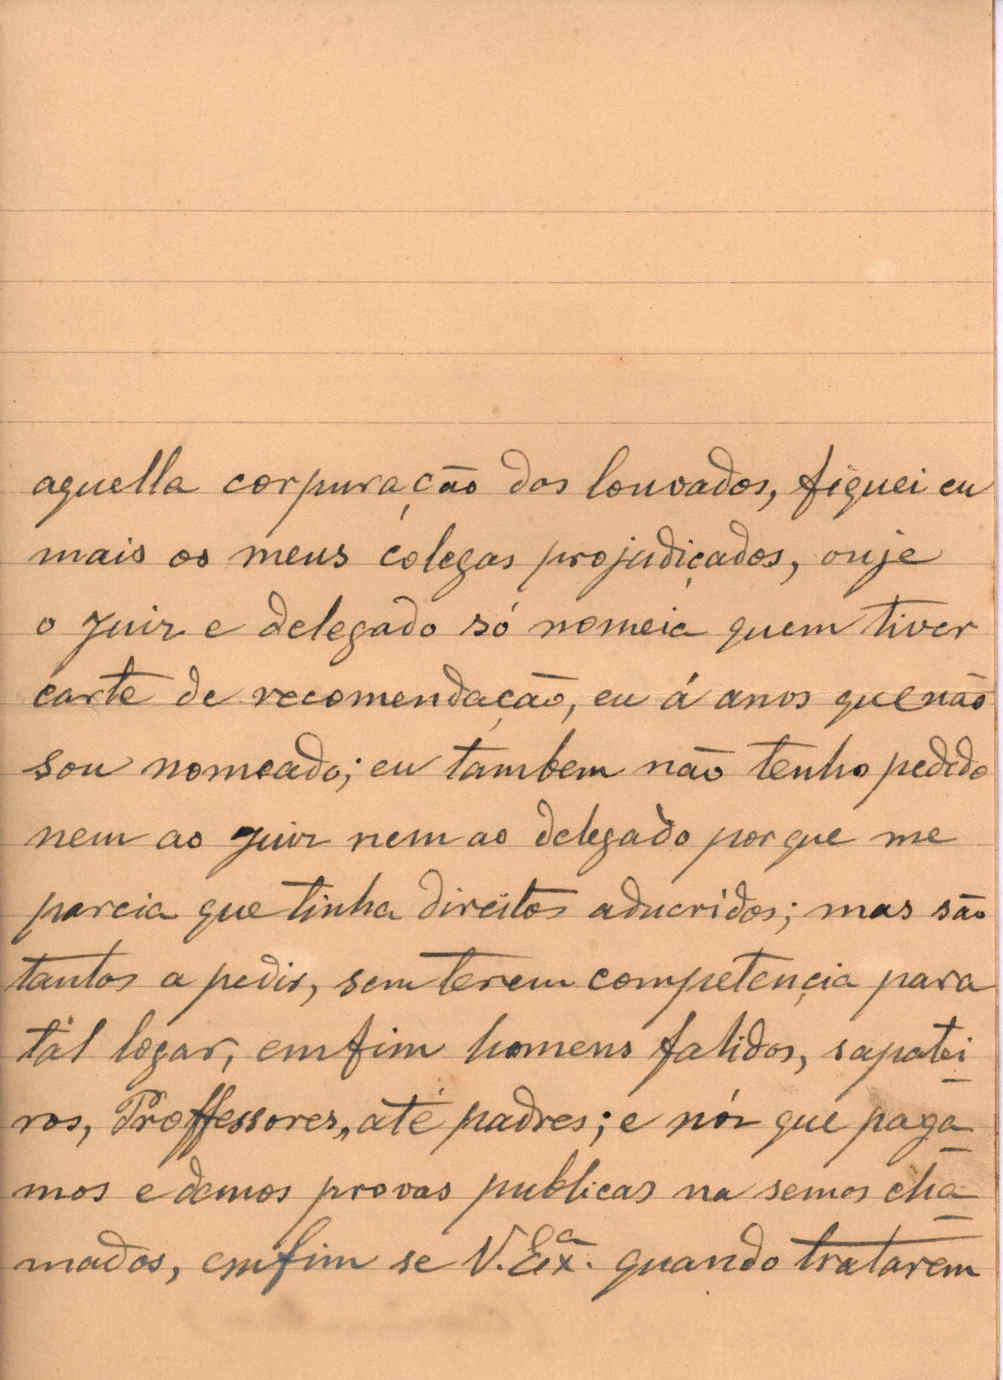 aquella corpuração dos louvados, fiquei eu
mais os meus colegas projudiçados, onje
o juiz e delegado só nomeia quem tiver
carte de recomendação, eu á anos que não
sou nomeado; eu tambem não tenho pedido
nem ao juiz nem ao delegado porque me
parcia que tinha direitos aducridos; mas são
tantos a pedir, sem terem competençia para
tál logar, emfim homens falidos, sapatei
ros, Proffessores, até padres; e nós que paga
mos e demos provas publicas na semos cha
mados, emfim se V. Exª. quando tratarem